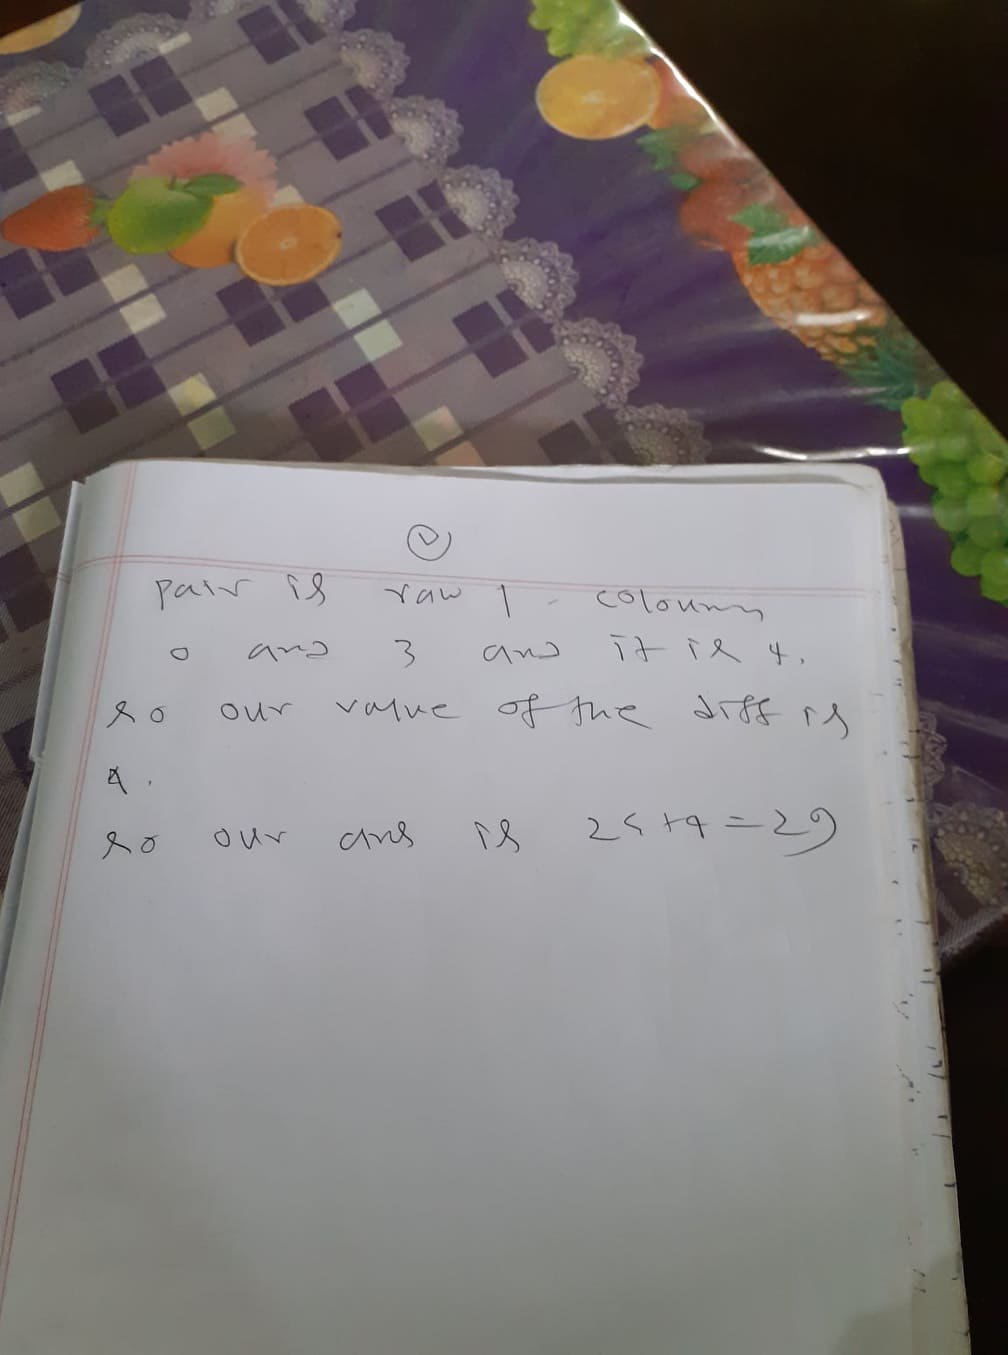 pair is raw 1 - coloumn
0 and 3 and it is 4.
so our value of the diff is
4.
so our ans is 25+4=29